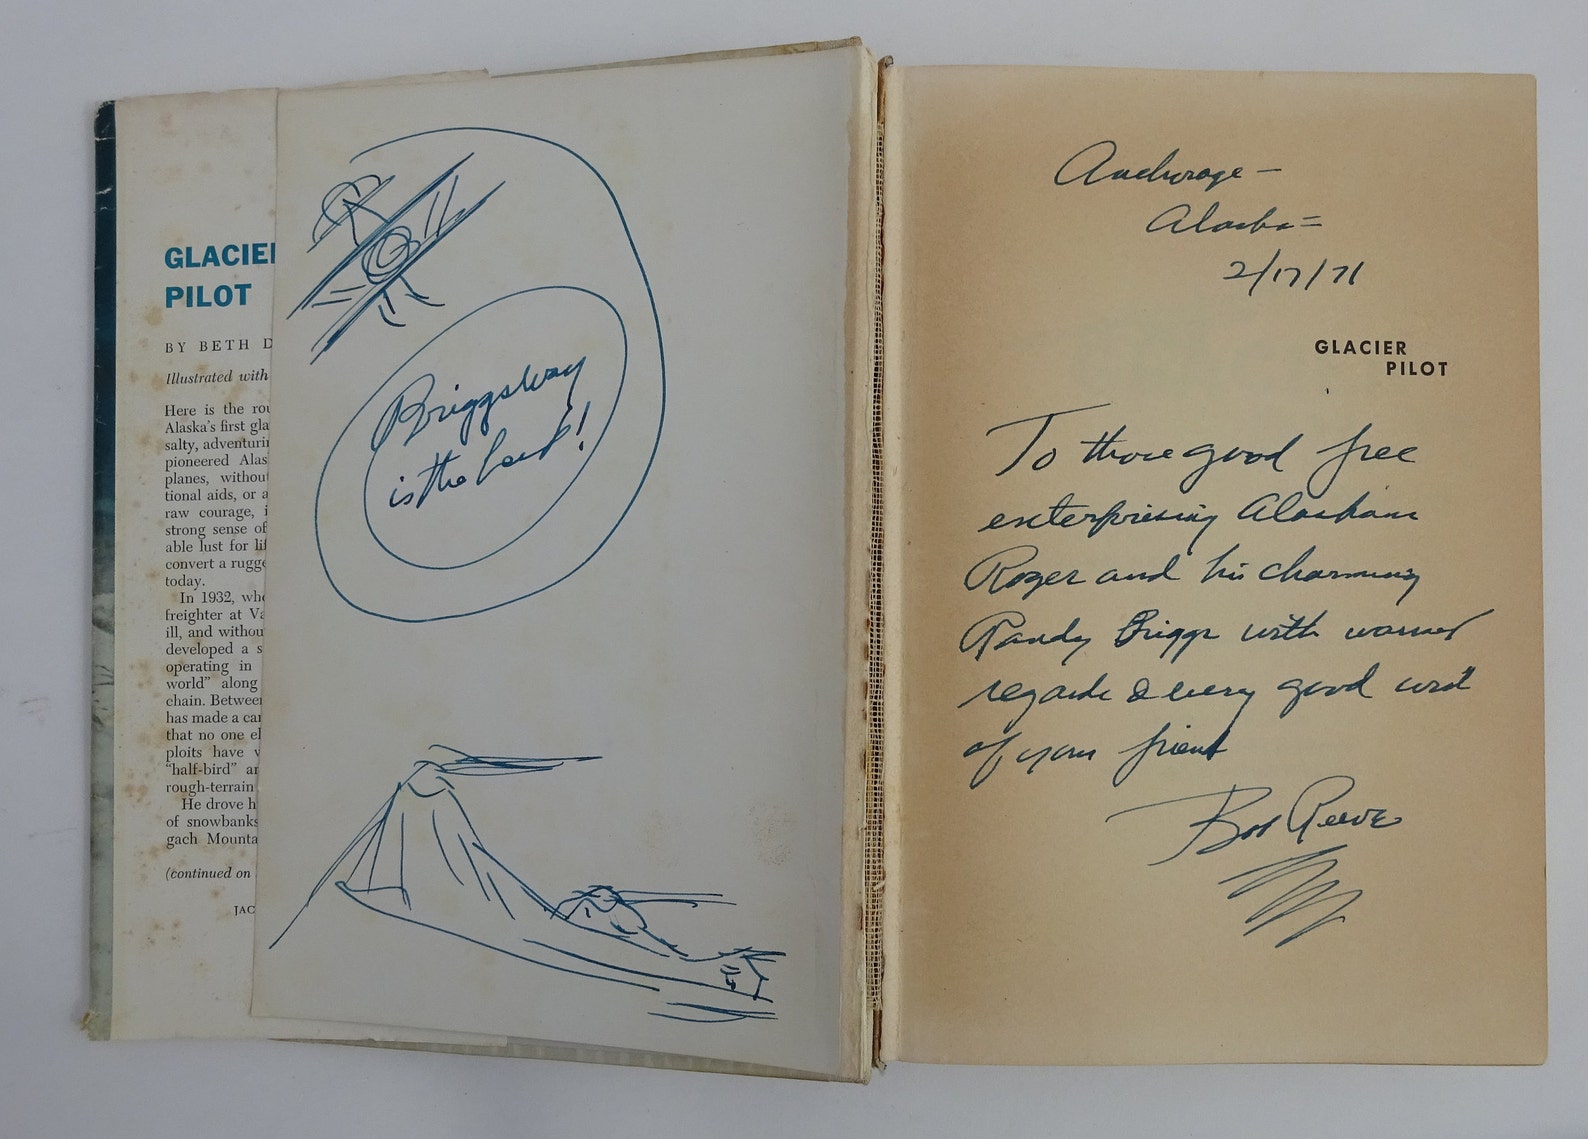 GLACIER
PILOT
BY BETH D
Illustrated with
Here is the rou
Alaska's first gla
salty, adventurin
pioneered Alas
planes, without
tional aids, or a
raw courage, i
strong sense of
able lust for lif
convert a rugge
today.
In 1932, whe
freighter at Va
ill, and withou
developed a s
operating in
world" along
chain. Between
has made a car
that no one el
ploits have w
"half-bird" an
rough-terrain
He drove h
of snowbanks
gach Mounta
(continued on
JAC
Briggsway
is the best!
Anchorage -
Alaska =
2/17/71
GLACIER
PILOT
To those good free
enterprising Alaskans
Roger and his charming
Randy Briggs with warmest
regards & every good wish
of your friend
Bob Reeve